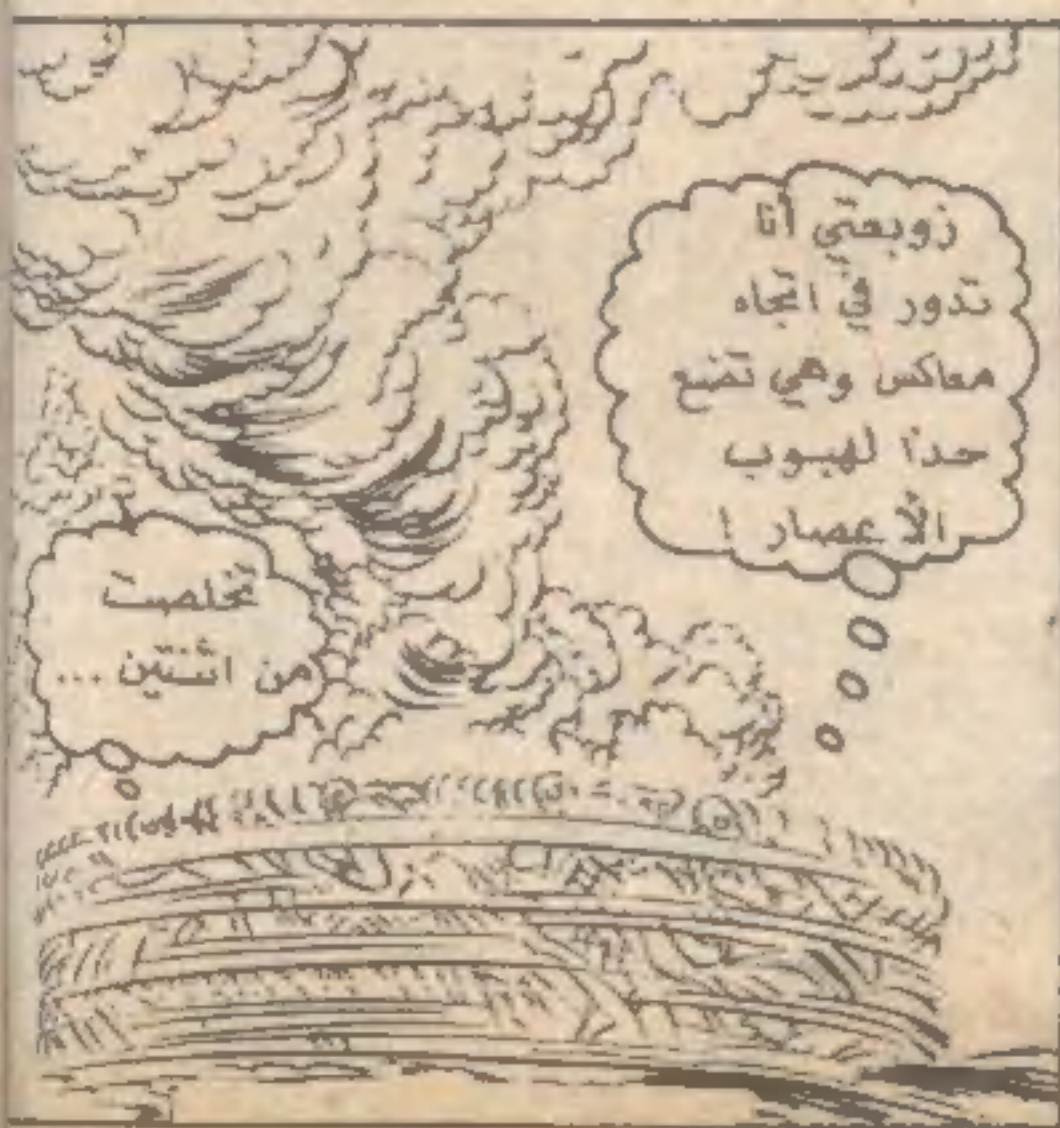 زوبعتي أنا
تدور في اتجاه
معاكس وهي تضع
حدًا لهبوب
الأعصار !
تخلصت
من اثنتين ...